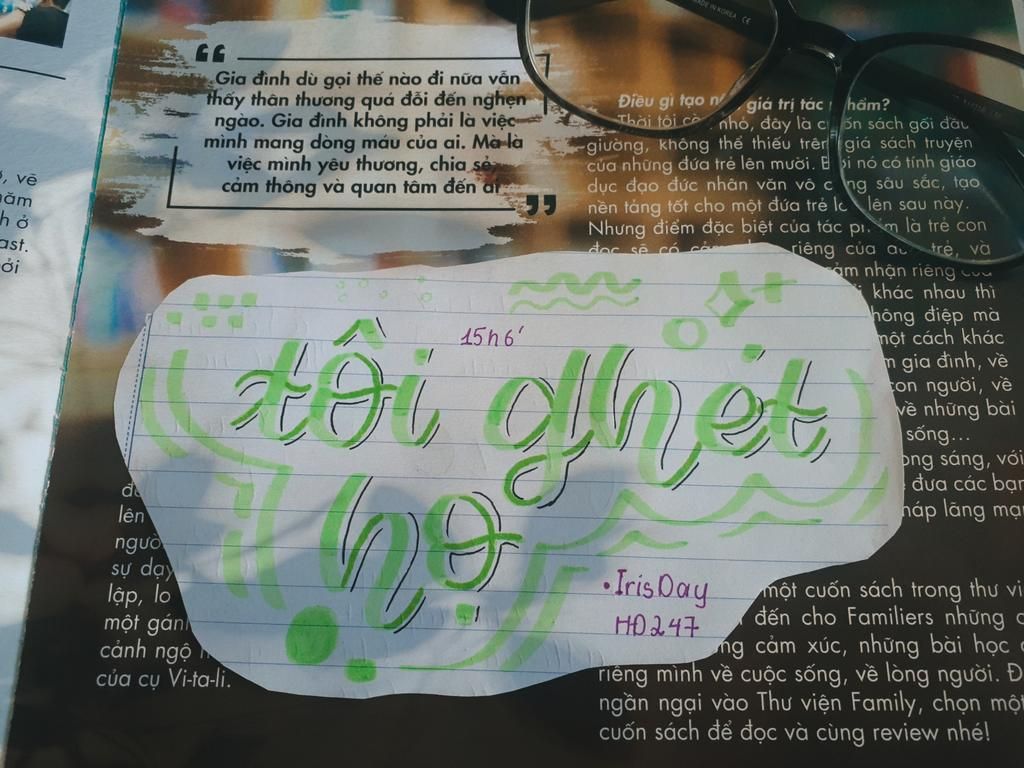 MADE IN KOREA CE
“
Gia đình dù gọi thế nào đi nữa vẫn
thấy thân thương quá đỗi đến nghẹn
ngào. Gia đình không phải là việc
mình mang dòng máu của ai. Mà là
việc mình yêu thương, chia sẻ,
cảm thông và quan tâm đến ai
”
Điều gì tạo giá trị tác phẩm?
Thời tôi còn nhỏ, đây là cuốn sách gối đầu
giường, không thể thiếu trên giá sách truyện
của những đứa trẻ lên mười. Bởi nó có tính giáo
dục đạo đức nhân văn vô cùng sâu sắc, tạo
nền tảng tốt cho một đứa trẻ lớn lên sau này.
Nhưng điểm đặc biệt của tác phẩm là trẻ con
đọc sẽ có riêng của trẻ, và
nhận riêng của
khác nhau thì
điệp mà
một cách khác
gia đình, về
con người, về
về những bài
sống...
sáng, với
đưa các bạn
lãng mạ
15h6'
tôi ghét
họ
• IrisDay
HD247
, vẽ
h ở
ast.
ởi
lên
ngườ
sự dạy
lập, lo
một gán
cảnh ngộ
của cụ Vi-ta-li.
một cuốn sách trong thư vi
đến cho Familiers những
cảm xúc, những bài học
riêng mình về cuộc sống, về lòng người. Đ
ngần ngại vào Thư viện Family, chọn mộ
cuốn sách để đọc và cùng review nhé!